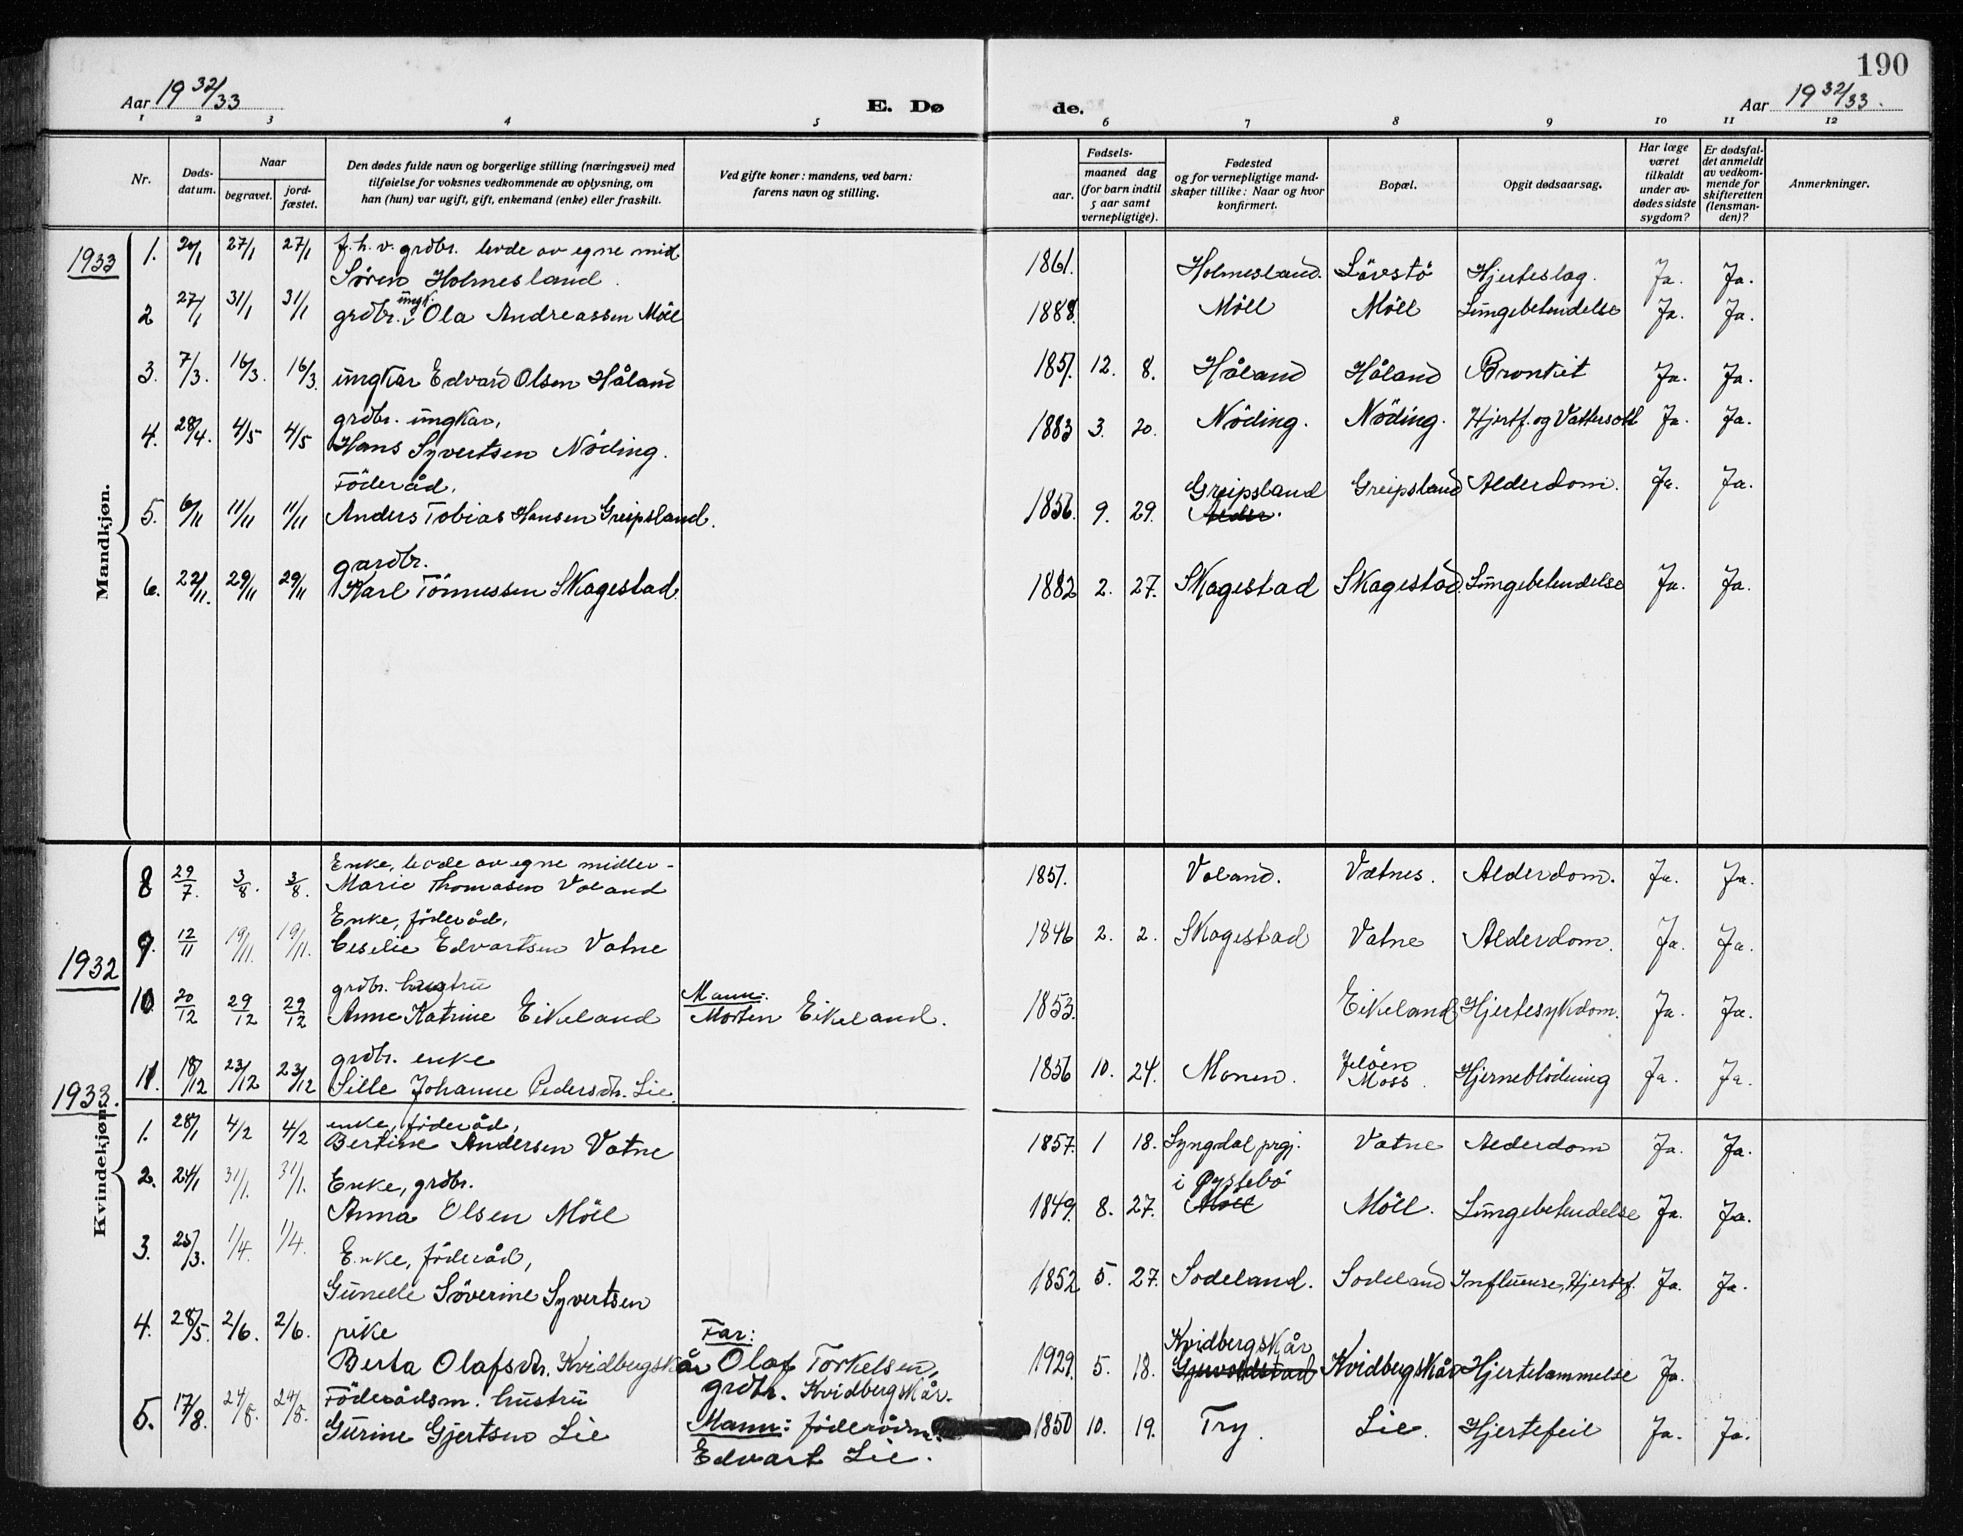 190
Aar 19 32/33
E. Dø
de.
Aar 19 32/33.
1 2 3 4 5 6 7 8 9 10 11 12
Nr.
Døds-
datum.
Naar
begravet.
jord-
fæstet.
Den dødes fulde navn og borgerlige stilling (næringsvei) med
tilføielse for voksnes vedkommende av oplysning, om
han (hun) var ugift, gift, enkemand (enke) eller fraskilt.
Ved gifte koner: mandens, ved barn:
farens navn og stilling.
Fødsels-
aar.
maaned dag
(for barn indtil
5 aar samt
vernepligtige).
Fødested
og for vernepligtige mand-
skaper tillike: Naar og hvor
konfirmert.
Bopæl.
Opgit dødsaarsag.
Har læge
været
tilkaldt
under av-
dødes sidste
sygdom?
Er dødsfal-
det anmeldt
av vedkom-
mende for
skifteretten
(lensman-
den)?
Anmerkninger.
Mandkjøn.
1933
1. 20/1 27/1 27/1 f. h. v. grdbr. levde av egne mid
Sören Holmesland. 1861. Holmesland. Lövstö Hjerteslag. Ja. Ja.
2 27/1 31/1 31/1 grdbr. ungk. Ola Andreassen Möll 1888. Möll Möll Lungebetendelse Ja. Ja.
3. 7/3. 16/3. 16/3. ungkar Edvard Olsen Håland 1851. 12. 8. Håland Håland Bronkit Ja. Ja.
grdbr. ungkar,
4. 28/4. 4/5 4/5 Hans Syvertsen Nöding. 1883 3. 20. Nöding. Nöding. Hjertf. og Vattersott Ja. Ja.
Föderåd,
5. 6/11 11/11 11/11 Anders Tobias Hansen Greipsland. 1856. 9. 29. Greipsland Alder. Greipsland Alderdom. Ja. Ja.
gardbr.
6. 22/11. 29/11 29/11 Karl Tönnessen Skagestad. 1882 2. 27. Skagestad Skagestad. Lungebetendelse Ja. Ja.
Kvindekjøn.
1932
Enke, levde av egne midler-
8 29/7. 3/8. 3/8. Marie Thomasen Voland 1851. Voland. Vatnes. Alderdom. Ja. Ja.
Enke, föderåd,
9. 12/11 19/11. 19/11. Ceselie Edvartsen Vatne 1846 2. 2. Skagestad Vatne Alderdom. Ja. Ja.
grdbr. hustru
10. 20/12 29/12 29/12 Anne Katrine Eikeland Mann: Morten Eikeland. 1853. Eikeland Hjertesykdom. Ja. Ja.
grdbr. enke
11. 18/12 23/12 23/12 Sille Johanne Pedersdtr. Lie. 1856 10. 24. Monen. Jelöen Moss. Hjerneblödning Ja. Ja.
1933.
enke, föderåd,
1. 28/1 4/2 4/2 Bertine Andersen Vatne 1857. 1 18. Lyngdal prgj. Vatne Alderdom Ja. Ja.
2. 24/1 31/1. 31/1. Enke, grdbr.
Anna Olsen Möll 1849. 8. 27. i Øyslebö Möll Möll. Lungebetendelse Ja. Ja.
3. 25/3. 1/4. 1/4. Enke, föderåd,
Gunelle Söverine Syvertsen 1852 5. 27. Sodeland. Sodeland Influense, Hjertef. Ja. Ja.
4. 28/5. 2/6. 2/6. pike
Berta Olafsdtr. Kvidbergskår Far: Olaf Torkelsen, grdbr. Kvidbergskår. 1929. 5. 18. Kvidbergskår Kvidbergskår Hjertelammelse Ja.
5. 17/8. 24/8. 24/8. Föderådsm. hustru
Gurine Gjertsen Lie Mann: föderådm. Edvart Lie. 1850 10. 19. Try. Lie. Hjertefeil Ja. Ja.